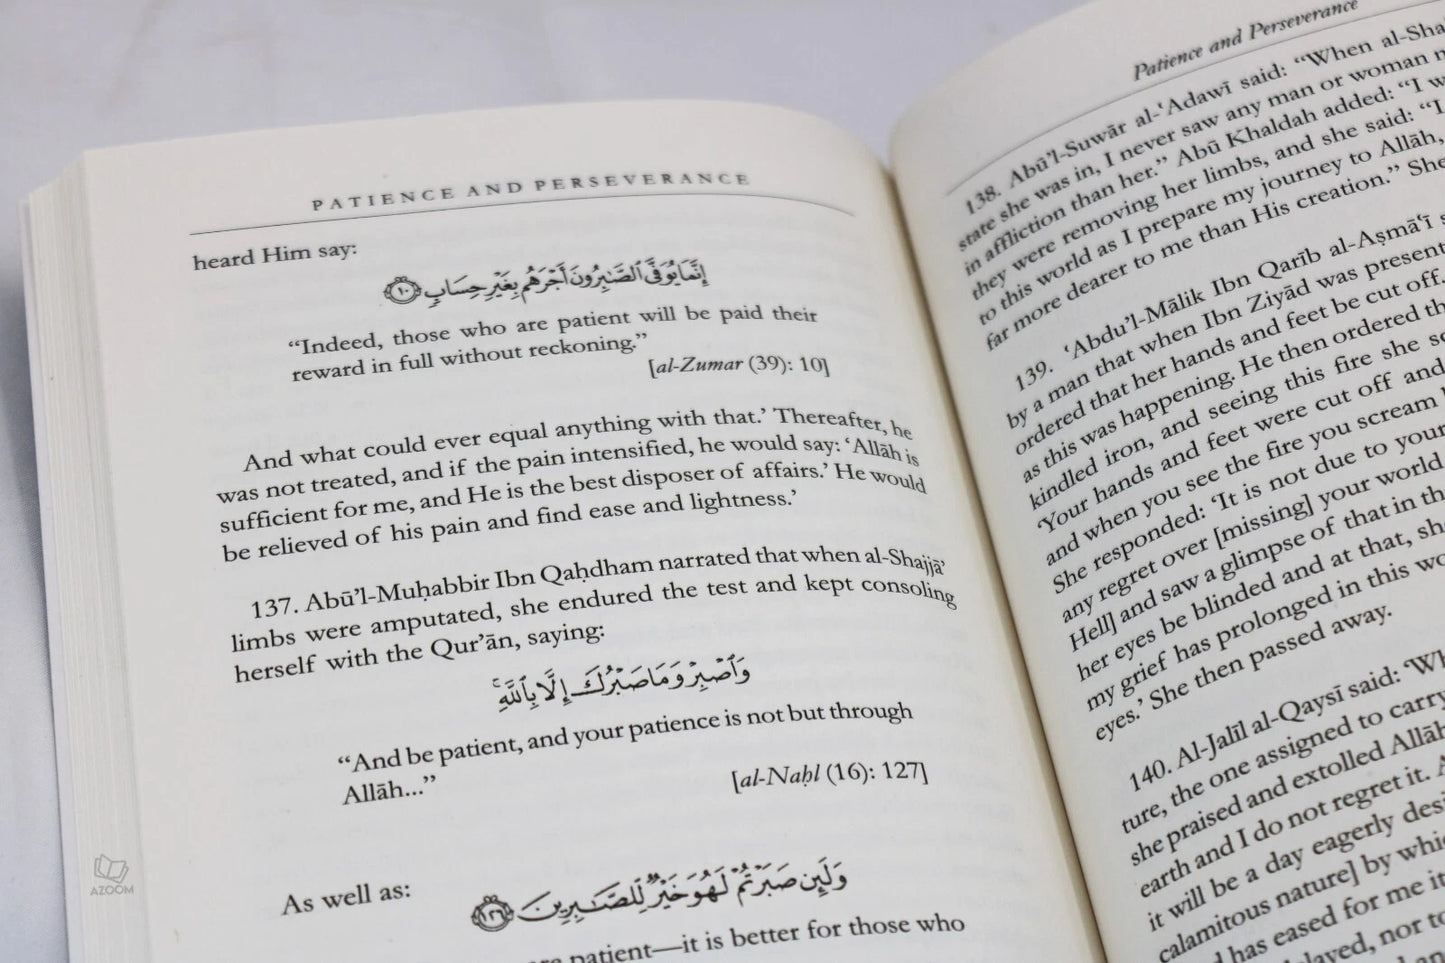 PATIENCE AND PERSEVERANCE
heard Him say:
إِنَّمَا يُوَفَّى ٱلصَّٰبِرُونَ أَجْرَهُم بِغَيْرِ حِسَابٍ ١٠
“Indeed, those who are patient will be paid their
reward in full without reckoning.”
[al-Zumar (39): 10]
And what could ever equal anything with that.’ Thereafter, he
was not treated, and if the pain intensified, he would say: ‘Allāh is
sufficient for me, and He is the best disposer of affairs.’ He would
be relieved of his pain and find ease and lightness.’
137. Abū’l-Muḥabbir Ibn Qaḥdham narrated that when al-Shajjā’
limbs were amputated, she endured the test and kept consoling
herself with the Qur’ān, saying:
وَٱصْبِرْ وَمَا صَبْرُكَ إِلَّا بِٱللَّهِ ۚ
“And be patient, and your patience is not but through
Allāh...”
[al-Naḥl (16): 127]
As well as:
وَلَئِن صَبَرْتُمْ لَهُوَ خَيْرٌ لِّلصَّٰبِرِينَ ١٢٦
patient—it is better for those who
AZOOM
Patience and Perseverance
138. Abū’l-Suwār al-‘Adawī said: “When al-Sha
state she was in, I never saw any man or woman
in affliction than her.” Abū Khaldah added: “I w
they were removing her limbs, and she said: “I
to this world as I prepare my journey to Allāh,
far more dearer to me than His creation.” She
139. ‘Abdu’l-Mālik Ibn Qarīb al-Aṣmā‘ī
by a man that when Ibn Ziyād was present
ordered that her hands and feet be cut off.
as this was happening. He then ordered th
kindled iron, and seeing this fire she sc
‘Your hands and feet were cut off and
and when you see the fire you scream
She responded: ‘It is not due to your
any regret over [missing] your world
Hell] and saw a glimpse of that in th
her eyes be blinded and at that, sh
my grief has prolonged in this wo
eyes.’ She then passed away.
140. Al-Jalīl al-Qaysī said: ‘Wh
ture, the one assigned to carry
she praised and extolled Allāh
earth and I do not regret it. A
it will be a day eagerly desi
calamitous nature] by whic
has eased for me it
layed, nor to